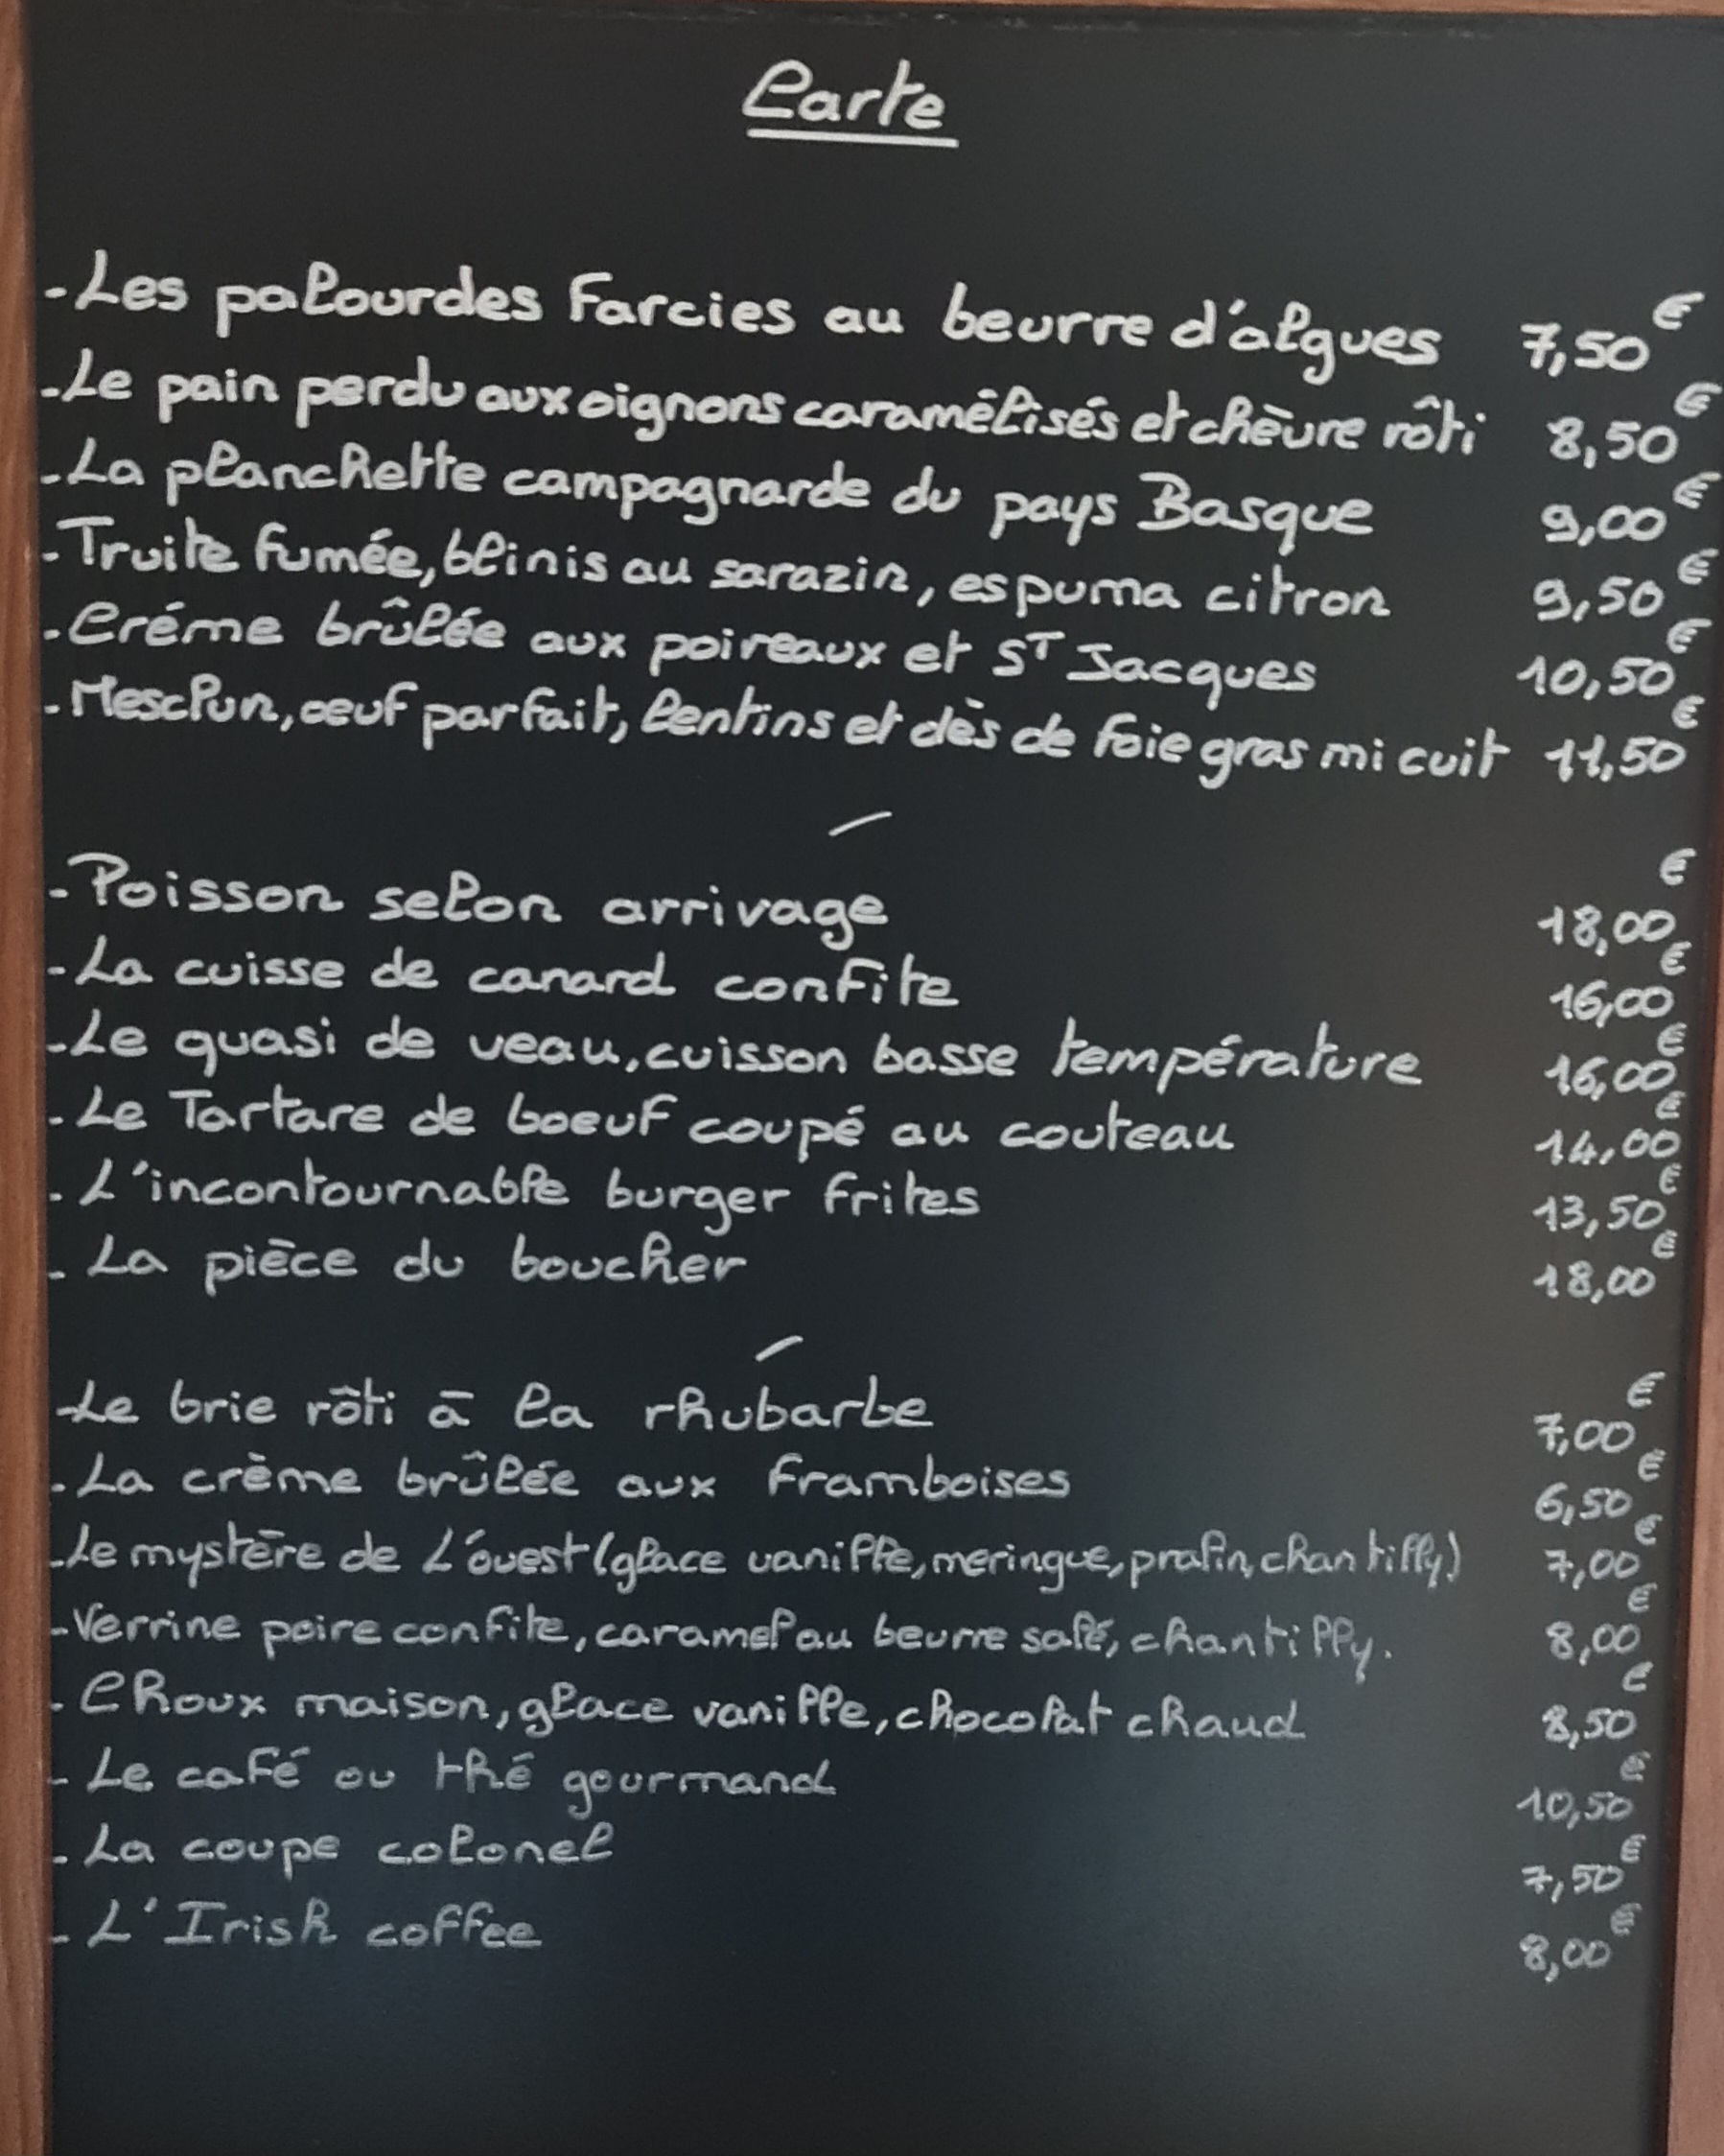 Carte
- Les palourdes farcies au beurre d'algues 7,50€
- Le pain perdu aux oignons caramélisés et chèvre rôti 8,50€
- La planchette campagnarde du pays Basque 9,00€
- Truite fumée, blinis au sarazin, espuma citron 9,50€
- Créme brûlée aux poireaux et ST Jacques 10,50€
- Mesclun, oeuf parfait, lentins et dès de foie gras mi cuit 11,50€
- Poisson selon arrivage 18,00€
- La cuisse de canard confite 16,00€
- Le quasi de veau, cuisson basse température 16,00€
- Le Tartare de boeuf coupé au couteau 14,00€
- L'incontournable burger frites 13,50€
- La pièce du boucher 18,00€
- Le brie rôti à la rhubarbe 7,00€
- La crème brûlée aux framboises 6,50€
- Le mystère de L'ouest (glace vanille, meringue, pralin, chantilly) 7,00€
- Verrine poire confite, caramel au beurre salé, chantilly. 8,00€
- Choux maison, glace vanille, chocolat chaud 8,50€
- Le café ou thé gourmand 10,50€
- La coupe colonel 7,50€
- L'Irish coffee 8,00€